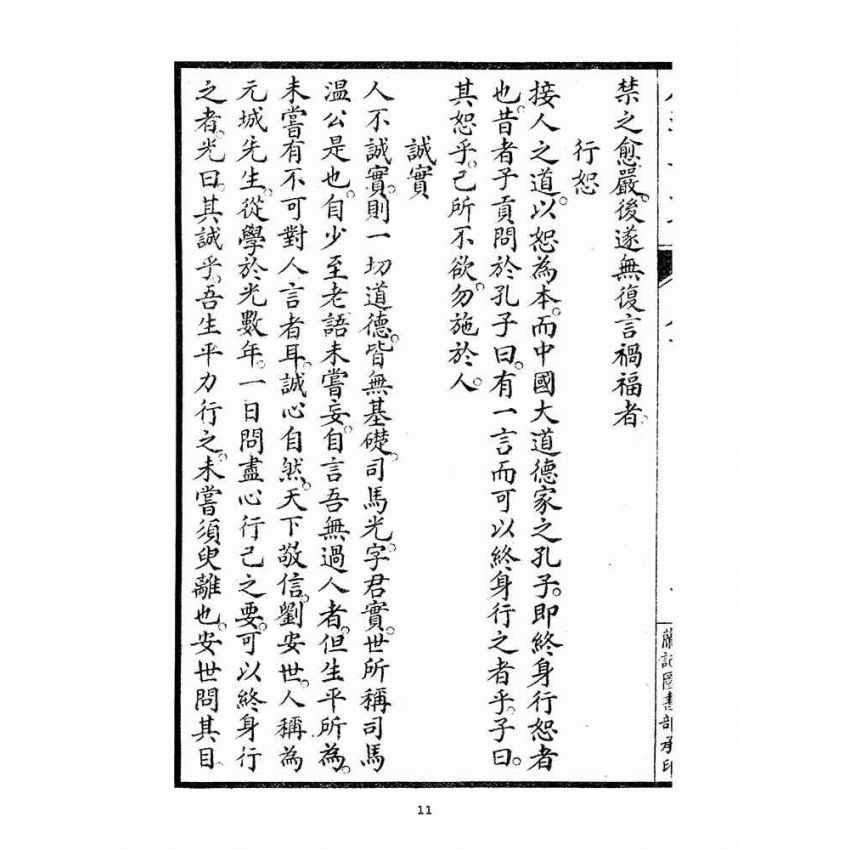 禁之愈嚴。後遂無復言禍福者。
行恕
接人之道。以恕為本。而中國大道德家之孔子。即終身行恕者
也。昔者子貢問於孔子曰。有一言而可以終身行之者乎。子曰。
其恕乎。己所不欲。勿施於人。
誠實
人不誠實。則一切道德。皆無基礎。司馬光。字君實。世所稱司馬
溫公是也。自少至老。語未嘗妄。自言吾無過人者。但生平所為。
未嘗有不可對人言者耳。誠心自然。天下敬信。劉安世。人稱為
元城先生。從學於光數年。一日問盡心行己之要。可以終身行
之者。光曰。其誠乎。吾生平力行之。未嘗須臾離也。安世問其目
圖書部承印
11